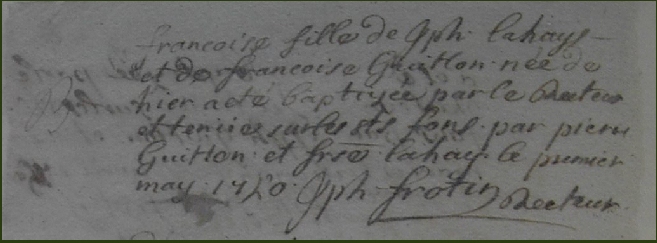 francoise fille de Jph lahays
et de francoise Guitton née de
hier a eté baptisée par le Recteur
et tenüe sur les sts fons par pierre
Guitton et frse lahays le premier
may 1740 Jph frotin Recteur